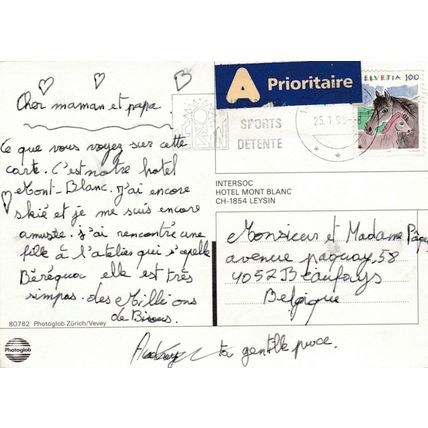 Cher maman et papa
Ce que vous voyez sur cette
carte. C'est notre hotel
Mont-Blanc. J'ai encore
skié et je me suis encore
amusée. j'ai rencontré une
fille à l'atelier qui s'apelle
elle est très
simpas. des Millions
de Bisous
ta gentille puce.
A Prioritaire
HELVETIA 100
25.1.95-8
SPORTS
DETENTE
INTERSOC
HOTEL MONT BLANC
CH-1854 LEYSIN
Monsieur et Madame
avenue 58
4052 Beaufays
Belgique
80762 Photoglob Zürich/Vevey
Photoglob